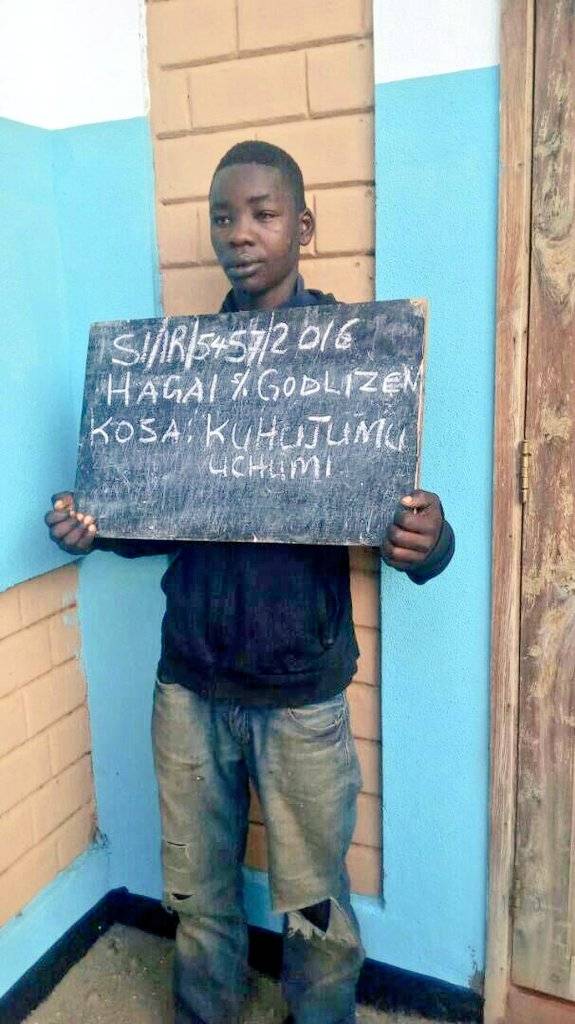 SI/IR/5457/2016
HAGAI % GODLIZEN
KOSA: KUHUJUMU
UCHUMI